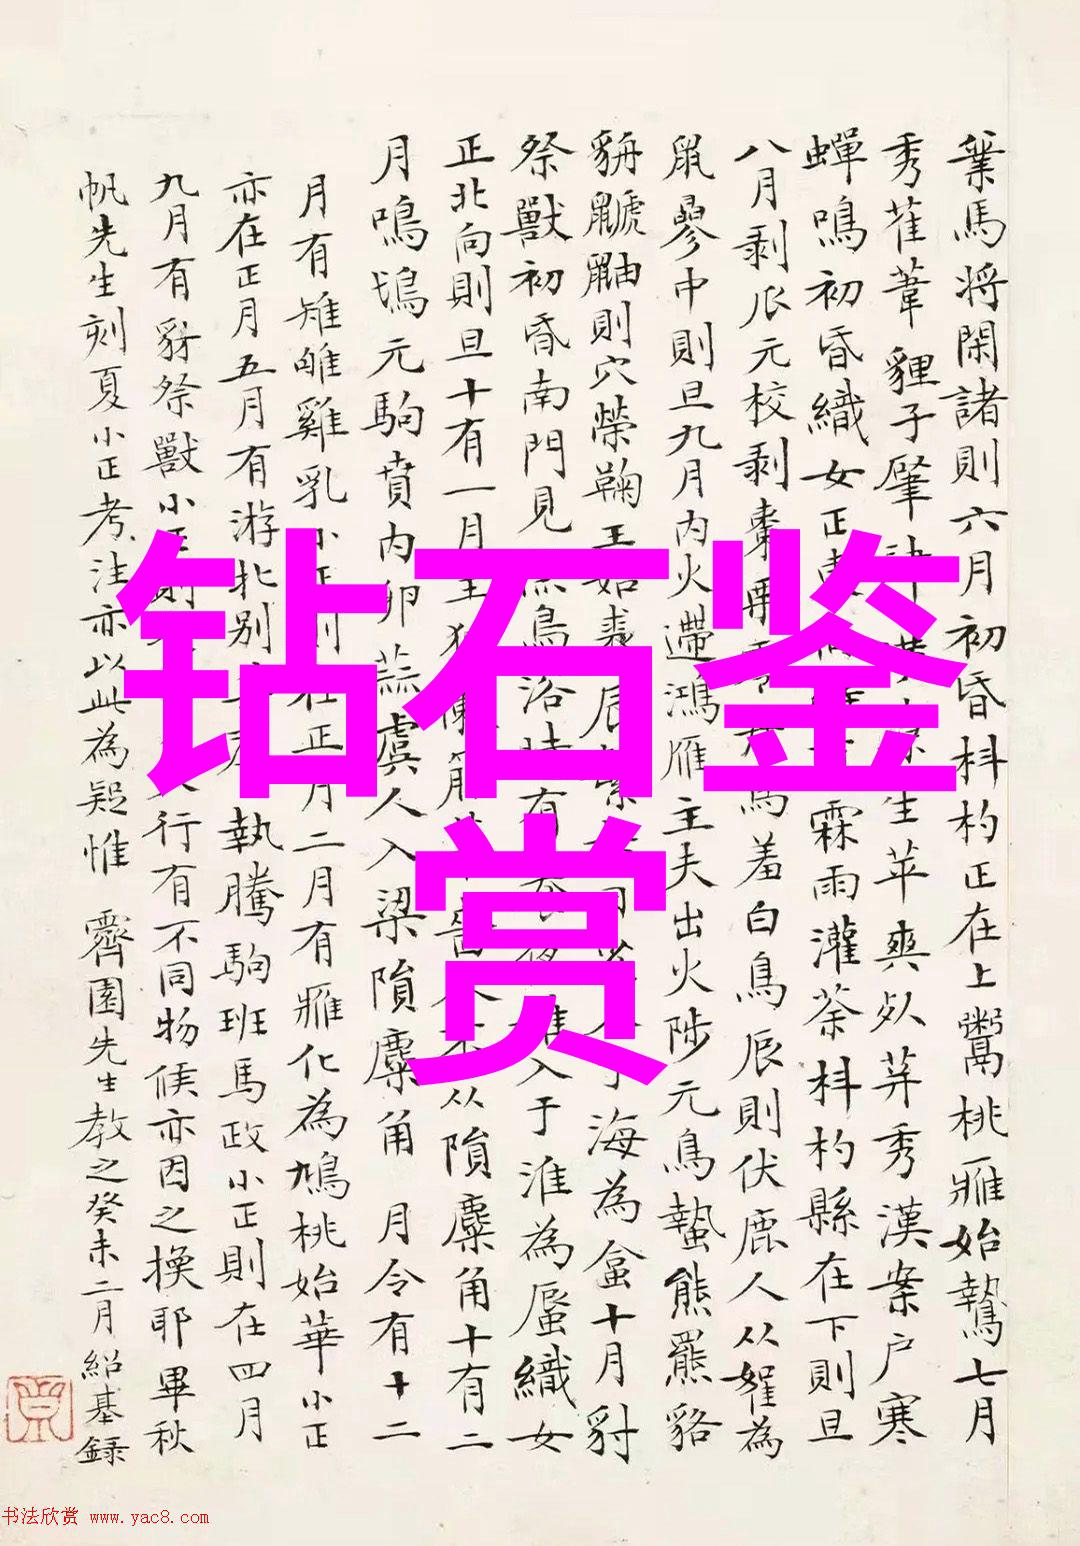 钻石鉴
赏
業馬將閑諸則六月初昏枓杓正在上鬻桃雁始鷙七月
秀雚葦貍子肇肆 生苹爽死荓秀漢案户寒
蟬鳴初昏織女正東 霖雨灌荼枓杓縣在下則旦
八月剥瓜元校剥棗 羞白鳥辰則伏鹿人从嬥為
鼠參中則旦九月内火遰鴻雁主夫出火陟元鳥蟄熊羆貉
鼬則穴榮鞠 于海為盒十月豺
祭獸初昏南門見 鳥浴時有 入于淮為蜃織女
正北向則旦十有一月王狩陳筋 从隕麋角十有二
月鳴鳴元駒賁内卵蒜虞人入梁隕麋角 月令有十二
月有雉雊雞乳小正則在正月二月有雁化為鳩桃始華小正
亦在正月五月有游牝别 執騰駒班馬政小正則在四月
九月有豺祭獸小正則 行有不同物候亦因之換耶畢秋
帆先生刻夏小正考注亦以此為疑惟 霽園先生教之癸未二月紹基録
书法欣赏 www.yac8.com